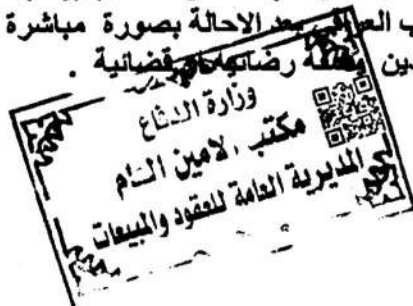 ب العراقي بعد الاحالة بصورة مباشرة
دين رضائية قضائية .
وزارة الدفاع
مكتب الامين العام
المديرية العامة للعقود والمبيعات